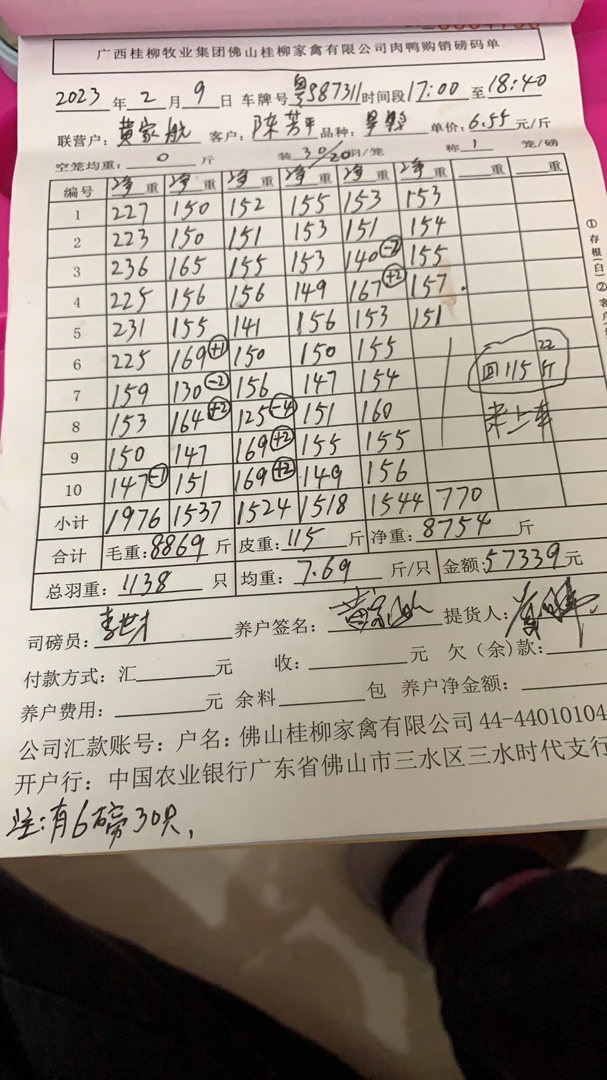 广西桂柳牧业集团佛山桂柳家禽有限公司肉鸭购销磅码单
2023年2月9日 车牌号粤S87311时间段17:00至18:40
联营户:黄家航 客户:陈芳平 品种: 单价:6.55元/斤
空笼均重:0斤 装30/20羽/笼 称1笼/磅
编号 净重 净重 净重 净重 净重 净重 重 重
1 227 150 152 155 153 153
2 223 150 151 153 151 154
3 236 165 155 153 140(-2) 155
4 225 156 156 149 167(+2) 157.
5 231 155 141 156 153 151
6 225 169(+1) 150 150 155
7 159 130(-2) 156 147 154
8 153 164(+2) 125(-4) 151 160
9 150 147 169(+2) 155 155
10 147(-1) 151 169(+2) 149 156
22
回115斤
未上车
小计 1976 1537 1524 1518 1544 770
合计 毛重:8869斤 皮重:115斤 净重:8754斤
总羽重:1138只 均重:7.69斤/只 金额:57339元
司磅员:李世才 养户签名: 提货人:
付款方式:汇 元 收: 元 欠(余)款:
养户费用: 元 余料 包 养户净金额:
公司汇款账号:户名:佛山桂柳家禽有限公司 44-44010104
开户行:中国农业银行广东省佛山市三水区三水时代支行
注:有6磅30只,
①存根(白)②客户